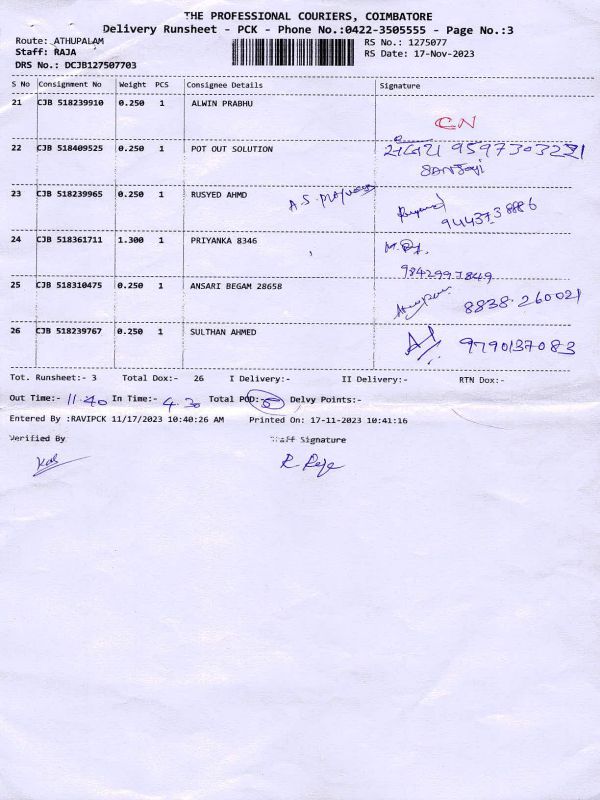 THE PROFESSIONAL COURIERS, COIMBATORE
Delivery Runsheet - PCK - Phone No.:0422-3505555 - Page No.:3
Route: ATHUPALAM
Staff: RAJA
DRS No.: DCJB127507703
RS No.: 1275077
RS Date: 17-Nov-2023
S No Consignment No Weight PCS Consignee Details Signature
21 CJB 518239910 0.250 1 ALWIN PRABHU
CN
22 CJB 518409525 0.250 1 POT OUT SOLUTION
23 CJB 518239965 0.250 1 RUSYED AHMD A.S.
9443738886
24 CJB 518361711 1.300 1 PRIYANKA 8346
9842993849
25 CJB 518310475 0.250 1 ANSARI BEGAM 28658
8838-260021
26 CJB 518239767 0.250 1 SULTHAN AHMED
9790137083
Tot. Runsheet:- 3 Total Dox:- 26 I Delivery:- II Delivery:- RTN Dox:-
Out Time:- 11.40 In Time:- 4.30 Total POD:- 5 Delvy Points:-
Entered By :RAVIPCK 11/17/2023 10:40:26 AM Printed On: 17-11-2023 10:41:16
Verified By Staff Signature
R. Raja